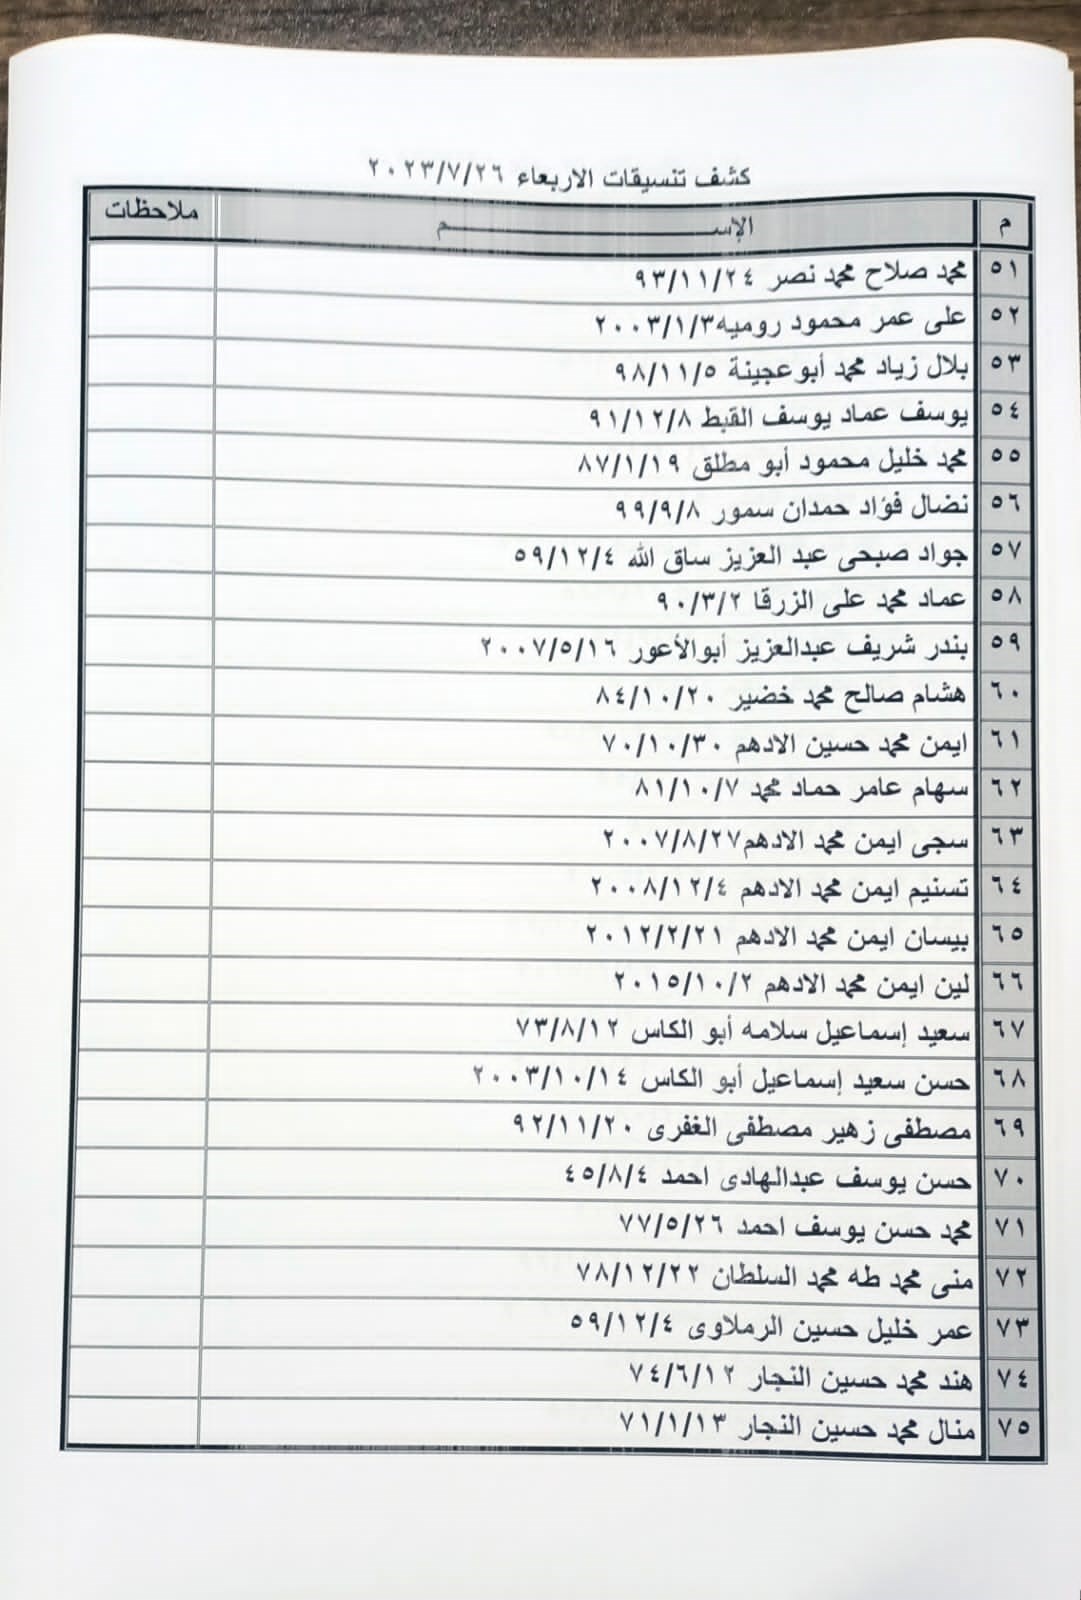 كشف تنسيقات الاربعاء ٢٠٢٣/٧/٢٦
م الإســـــــــــــــــــم ملاحظات
٥١ محمد صلاح محمد نصر ٩٣/١١/٢٤
٥٢ على عمر محمود روميه٢٠٠٣/١/٣
٥٣ بلال زياد محمد أبوعجينة ٩٨/١١/٥
٥٤ يوسف عماد يوسف القبط ٩١/١٢/٨
٥٥ محمد خليل محمود أبو مطلق ٨٧/١/١٩
٥٦ نضال فؤاد حمدان سمور ٩٩/٩/٨
٥٧ جواد صبحى عبد العزيز ساق الله ٥٩/١٢/٤
٥٨ عماد محمد على الزرقا ٩٠/٣/٢
٥٩ بندر شريف عبدالعزيز أبوالأعور ٢٠٠٧/٥/١٦
٦٠ هشام صالح محمد خضير ٨٤/١٠/٢٠
٦١ ايمن محمد حسين الادهم ٧٠/١٠/٣٠
٦٢ سهام عامر حماد محمد ٨١/١٠/٧
٦٣ سجى ايمن محمد الادهم٢٠٠٧/٨/٢٧
٦٤ تسنيم ايمن محمد الادهم ٢٠٠٨/١٢/٤
٦٥ بيسان ايمن محمد الادهم ٢٠١٢/٢/٢١
٦٦ لين ايمن محمد الادهم ٢٠١٥/١٠/٢
٦٧ سعيد إسماعيل سلامه أبو الكاس ٧٣/٨/١٢
٦٨ حسن سعيد إسماعيل أبو الكاس ٢٠٠٣/١٠/١٤
٦٩ مصطفى زهير مصطفى الغفرى ٩٢/١١/٢٠
٧٠ حسن يوسف عبدالهادى احمد ٤٥/٨/٤
٧١ محمد حسن يوسف احمد ٧٧/٥/٢٦
٧٢ منى محمد طه محمد السلطان ٧٨/١٢/٢٢
٧٣ عمر خليل حسين الرملاوى ٥٩/١٢/٤
٧٤ هند محمد حسين النجار ٧٤/٦/١٢
٧٥ منال محمد حسين النجار ٧١/١/١٣